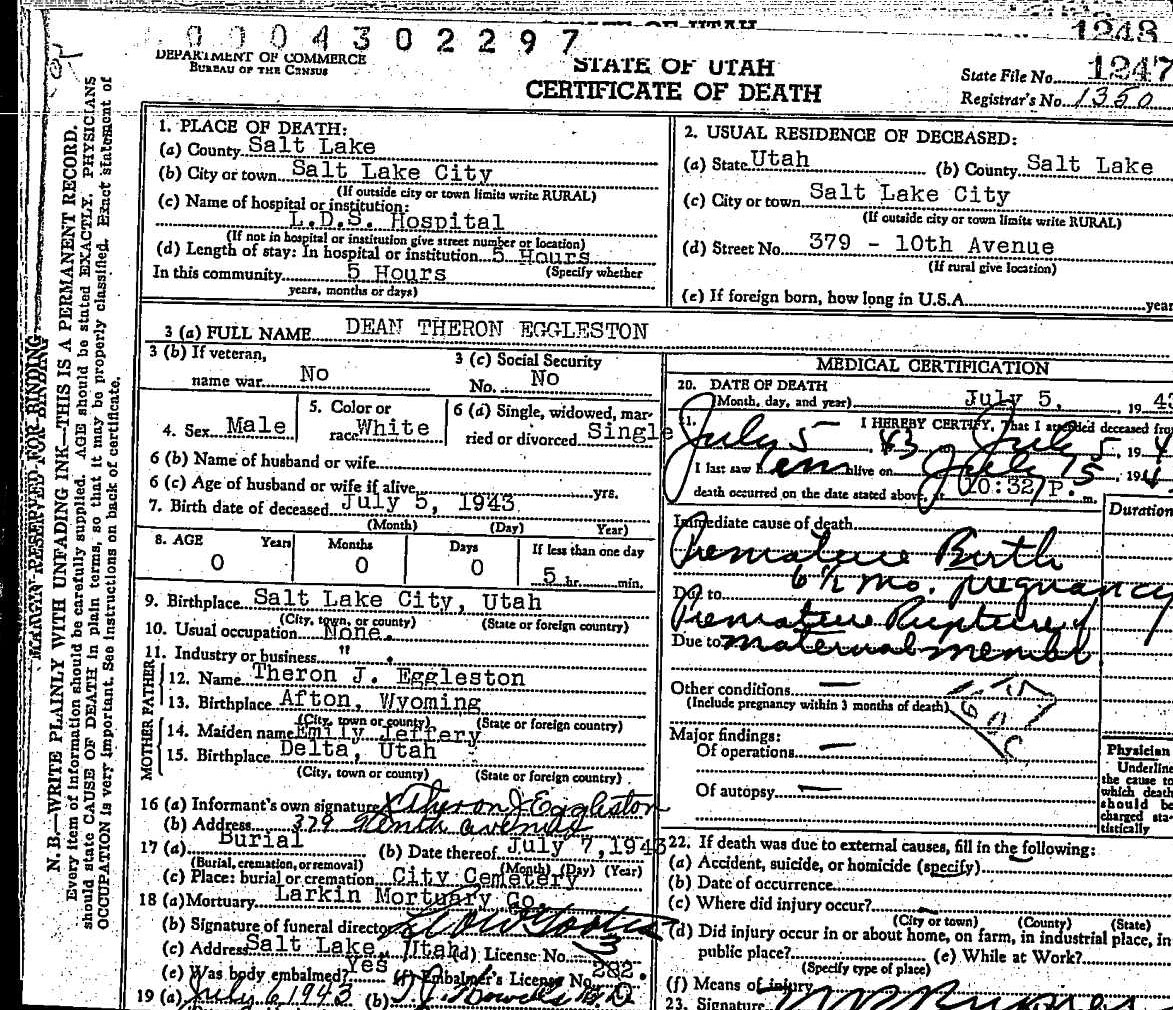 STATE OF UTAH
1248
0004302297
DEPARTMENT OF COMMERCE
BUREAU OF THE CENSUS
STATE OF UTAH
CERTIFICATE OF DEATH
State File No. 1247
Registrar's No. 1350
MARGIN RESERVED FOR BINDING
N. B.—WRITE PLAINLY WITH UNFADING INK—THIS IS A PERMANENT RECORD.
Every item of information should be carefully supplied. AGE should be stated EXACTLY. PHYSICIANS
should state CAUSE OF DEATH in plain terms, so that it may be properly classified. Exact statement of
OCCUPATION is very important. See instructions on back of certificate.
1. PLACE OF DEATH:
(a) County Salt Lake
(b) City or town Salt Lake City
(If outside city or town limits write RURAL)
(c) Name of hospital or institution:
L.D.S. Hospital
(If not in hospital or institution give street number or location)
(d) Length of stay: In hospital or institution 5 Hours
In this community 5 Hours (Specify whether
years, months or days)
2. USUAL RESIDENCE OF DECEASED:
(a) State Utah (b) County Salt Lake
(c) City or town Salt Lake City
(If outside city or town limits write RURAL)
(d) Street No. 379 - 10th Avenue
(If rural give location)
(e) If foreign born, how long in U.S.A. year
3 (a) FULL NAME DEAN THERON EGGLESTON
3 (b) If veteran,
name war No
3 (c) Social Security
No. No
4. Sex Male
5. Color or
race White
6 (d) Single, widowed, mar-
ried or divorced Single
6 (b) Name of husband or wife
6 (c) Age of husband or wife if alive yrs.
7. Birth date of deceased July 5, 1943
(Month) (Day) Year)
8. AGE Years Months Days If less than one day
0 0 0 5 hr. min.
9. Birthplace Salt Lake City, Utah
(City, town, or county) (State or foreign country)
10. Usual occupation None.
11. Industry or business " .
FATHER
12. Name Theron J. Eggleston
13. Birthplace Afton, Wyoming
(City, town or county) (State or foreign country)
MOTHER
14. Maiden name Emily Jeffery
15. Birthplace Delta, Utah
(City, town or county) (State or foreign country)
16 (a) Informant's own signature Theron J Eggleston
(b) Address 379 Tenth Avenue
17 (a) Burial (b) Date thereof July 7, 1943
(Burial, cremation, or removal) (Month) (Day) (Year)
(c) Place: burial or cremation City Cemetery
18 (a) Mortuary Larkin Mortuary Co.
(b) Signature of funeral director
(c) Address Salt Lake, Utah (d) License No. 3
(e) Was body embalmed? Yes (f) Embalmer's License No. 282.
19 (a) July 6 1943 (b)
MEDICAL CERTIFICATION
20. DATE OF DEATH
(Month, day, and year) July 5, 19 43
21. I HEREBY CERTIFY, That I attended deceased from
July 5 43 July 5, 19 4
I last saw h em alive on July 5, 19 4
death occurred on the date stated above, at 10:32 P. m.
Duration
Immediate cause of death
Premature Birth
6½ mo. pregnancy
Due to
Premature Rupture of
Due to maternal memb
Other conditions —
(Include pregnancy within 3 months of death)
Major findings:
Of operations —
Of autopsy —
Physician
Underline
the cause to
which death
should be
charged sta-
tistically
22. If death was due to external causes, fill in the following:
(a) Accident, suicide, or homicide (specify)
(b) Date of occurrence
(c) Where did injury occur?
(City or town) (County) (State)
(d) Did injury occur in or about home, on farm, in industrial place, in
public place? (e) While at Work?
(Specify type of place)
(f) Means of injury
23. Signature